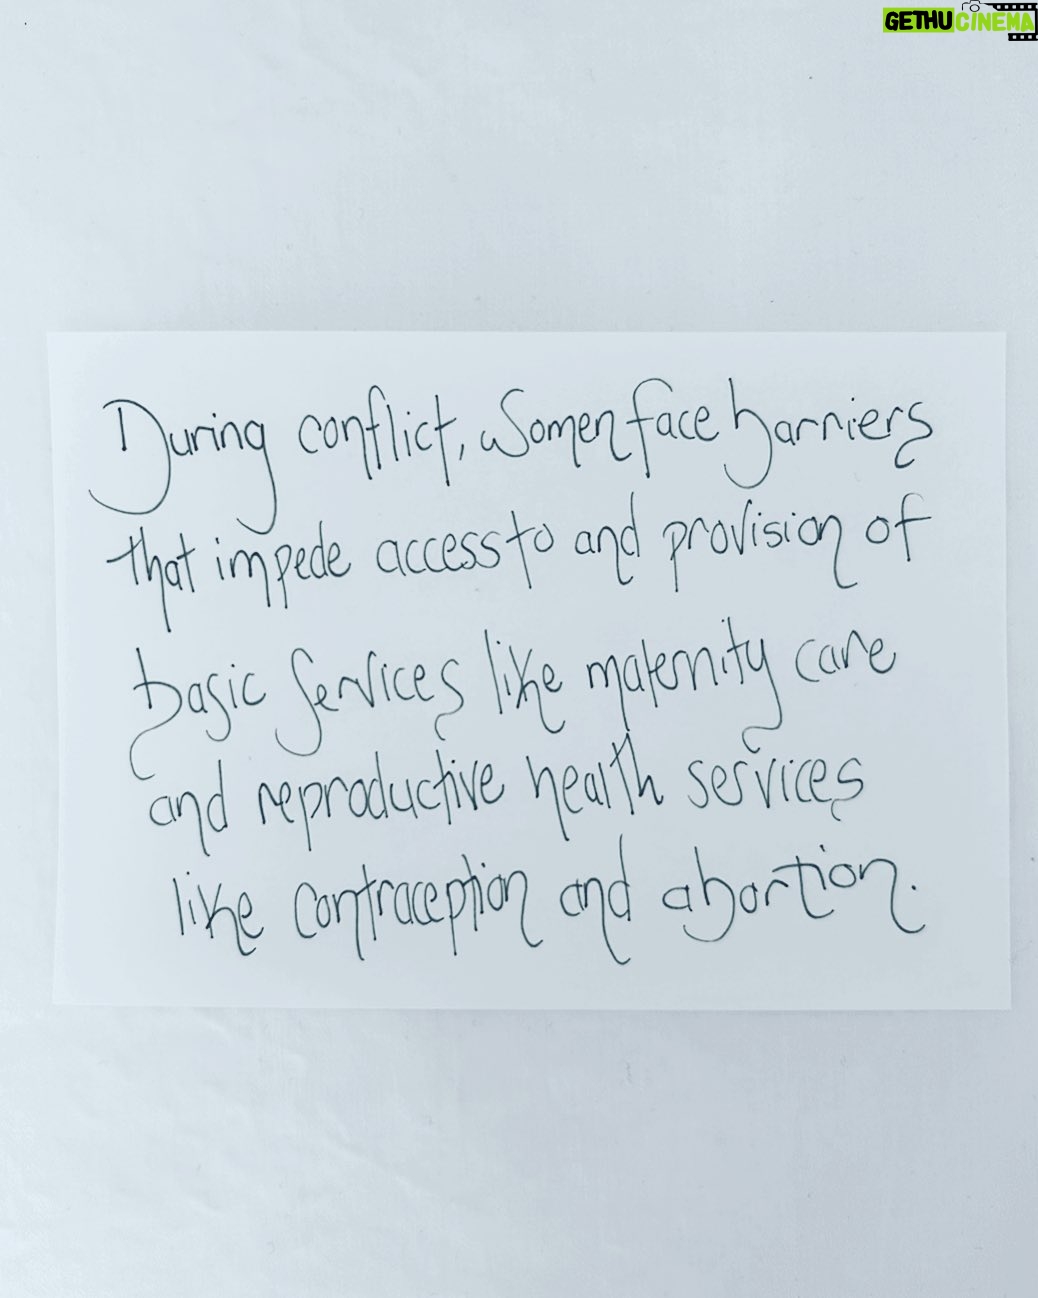 GETHUCINEMA
During conflict, women face barriers
that impede access to and provision of
basic services like maternity care
and reproductive health services
like contraception and abortion.